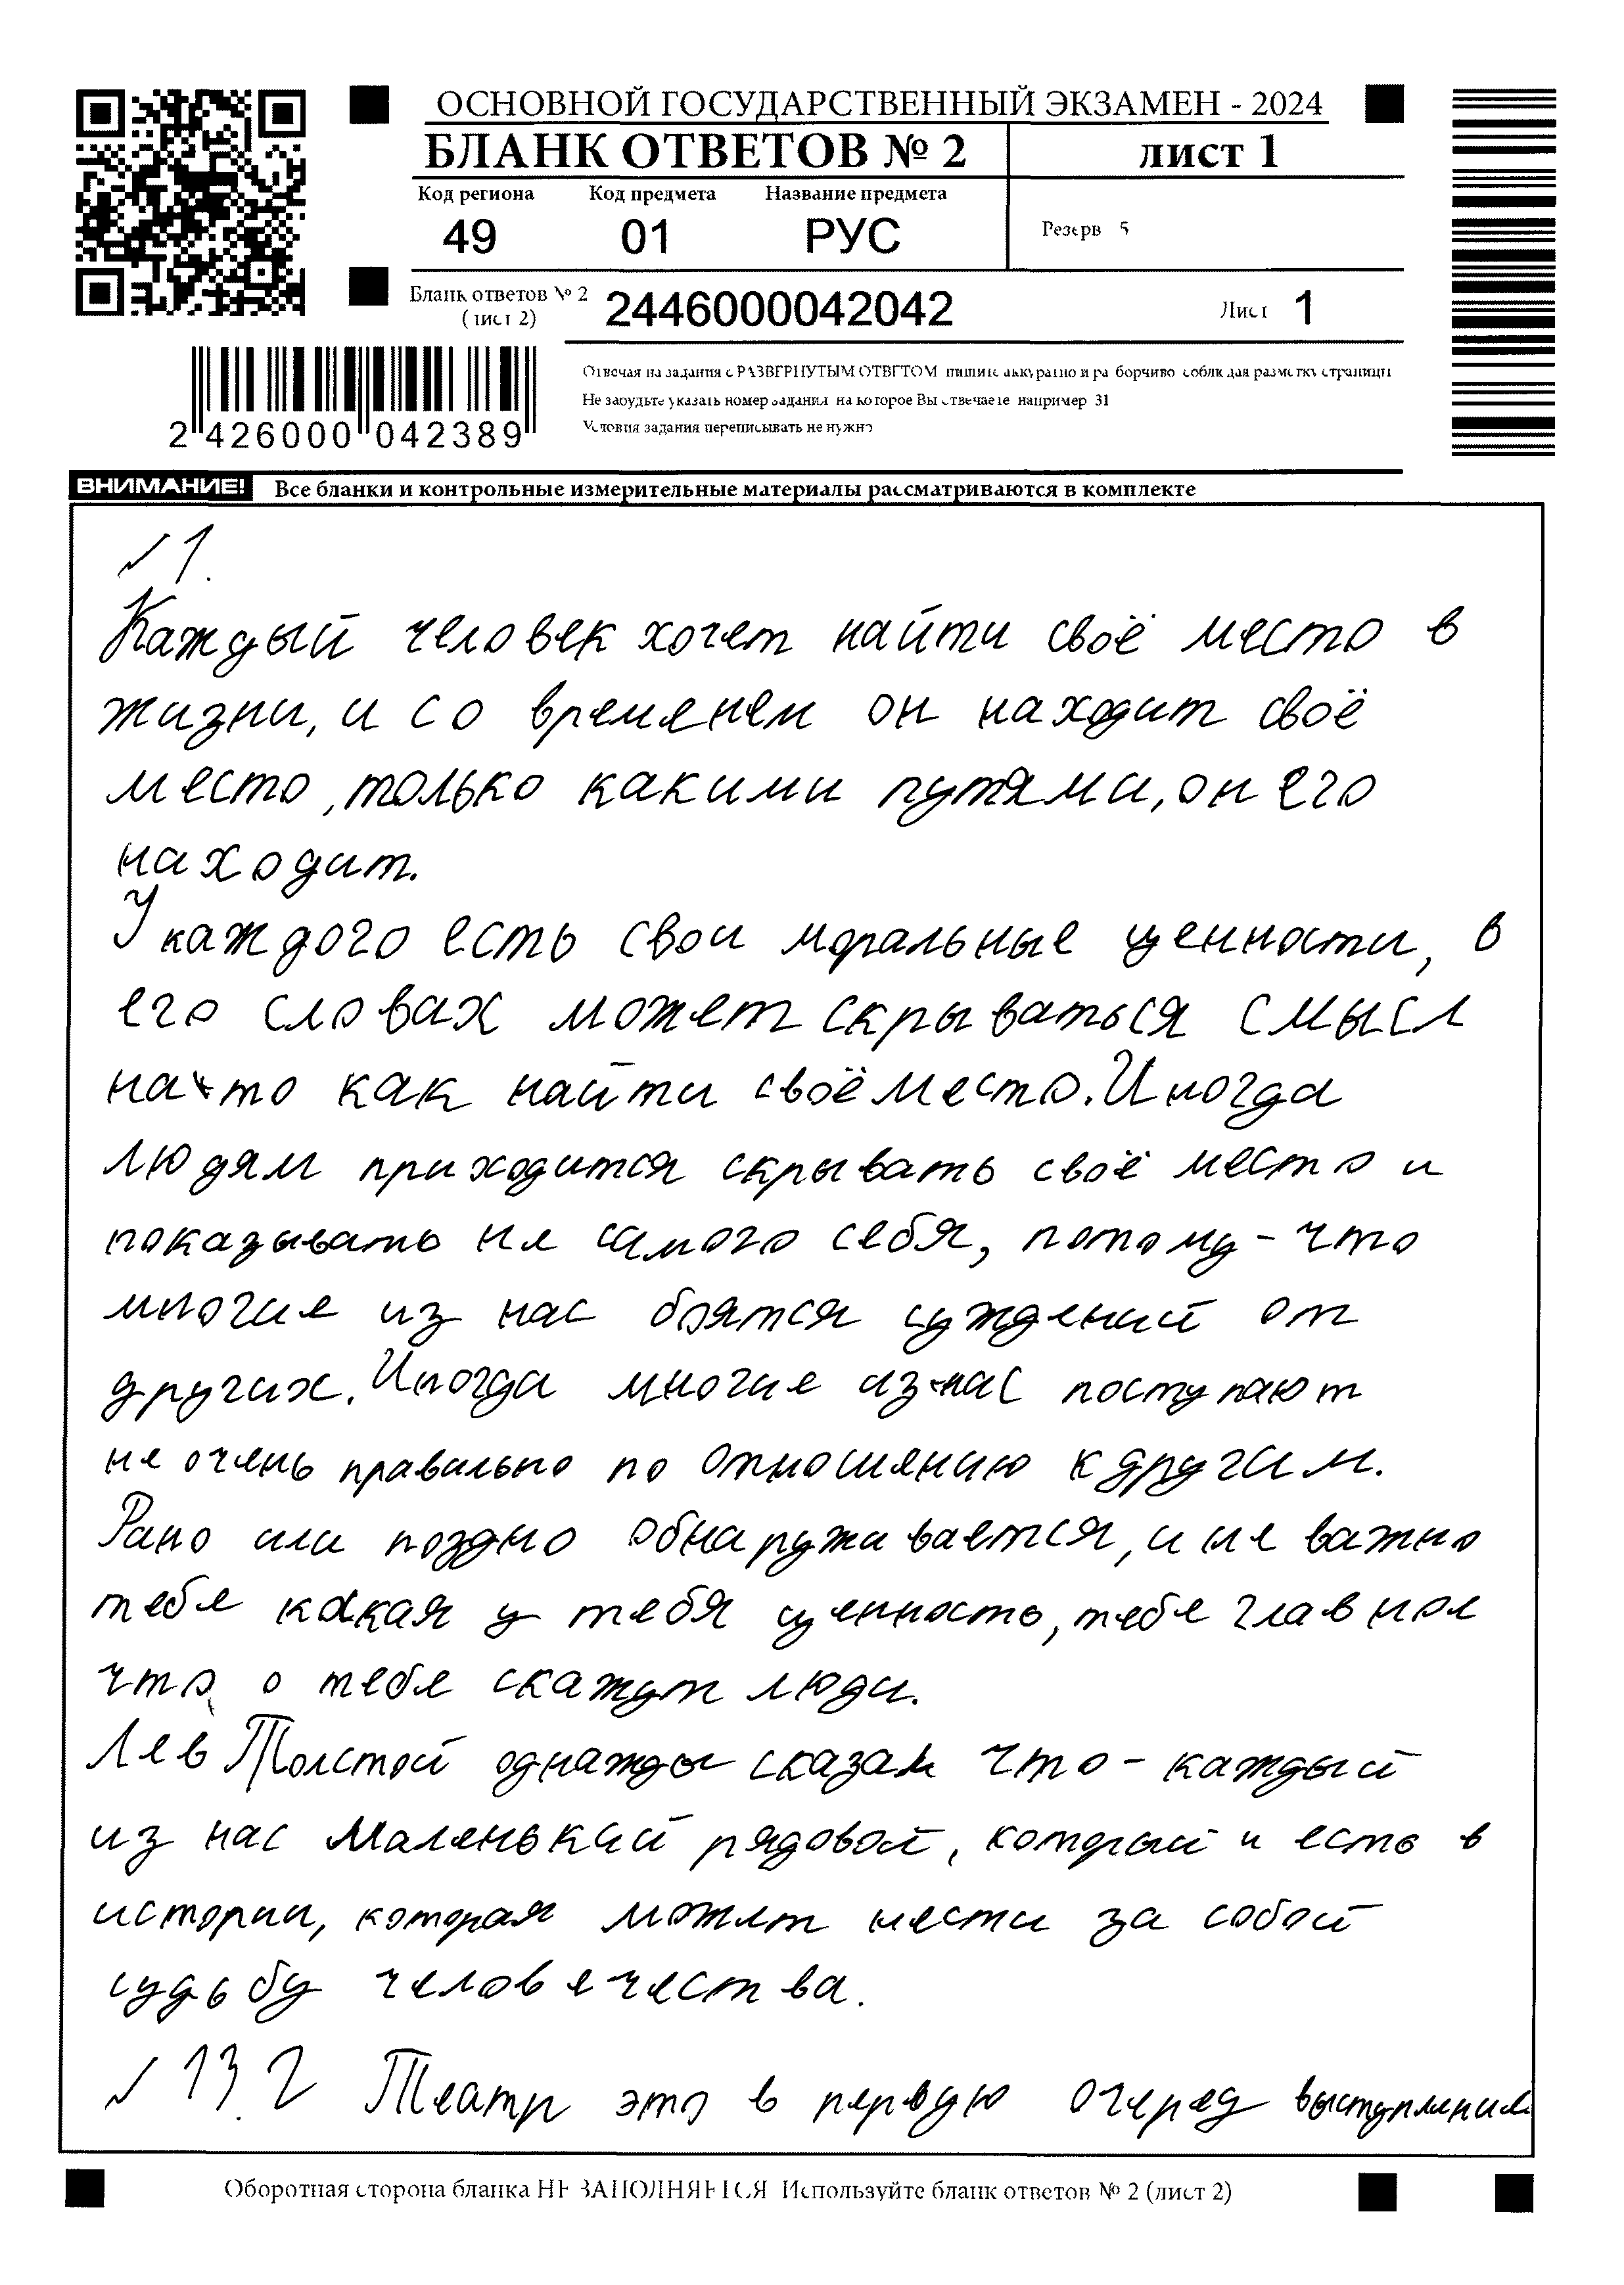 ОСНОВНОЙ ГОСУДАРСТВЕННЫЙ ЭКЗАМЕН - 2024
БЛАНК ОТВЕТОВ № 2
ЛИСТ 1
Код региона Код предмета Название предмета
49 01 РУС
Резерв 5
Бланк ответов № 2
(лист 2)
2446000042042
Лист 1
Отвечая на задания с РАЗВЕРНУТЫМ ОТВЕТОМ пишите аккуратно и разборчиво соблюдая разметку страницы
Не забудьте указать номер задания на которое Вы отвечаете например 31
Условия задания переписывать не нужно
2 426000 042389
ВНИМАНИЕ! Все бланки и контрольные измерительные материалы рассматриваются в комплекте
№1.
Каждый человек хочет найти своё место в
жизни, и со временем он находит своё
место, только какими путями, он его
находит.
У каждого есть свои моральные ценности, в
его словах может скрываться смысл
на то как найти своё место. Иногда
людям приходится скрывать своё место и
показывать не самого себя, потому-что
многие из нас боятся суждений от
других. Иногда многие из нас поступают
не очень правильно по отношению к другим.
Рано или поздно обнаруживается, и не важно
тебе какая у тебя ценность, тебе главное
что о тебе скажут люди.
Лев Толстой однажды сказал что - каждый
из нас маленький рядовой, который и есть в
истории, которая может нести за собой
судьбу человечества.
№ 13.2 Театр это в первую очеред выступление
Оборотная сторона бланка НЕ ЗАПОЛНЯЕТСЯ Используйте бланк ответов № 2 (лист 2)